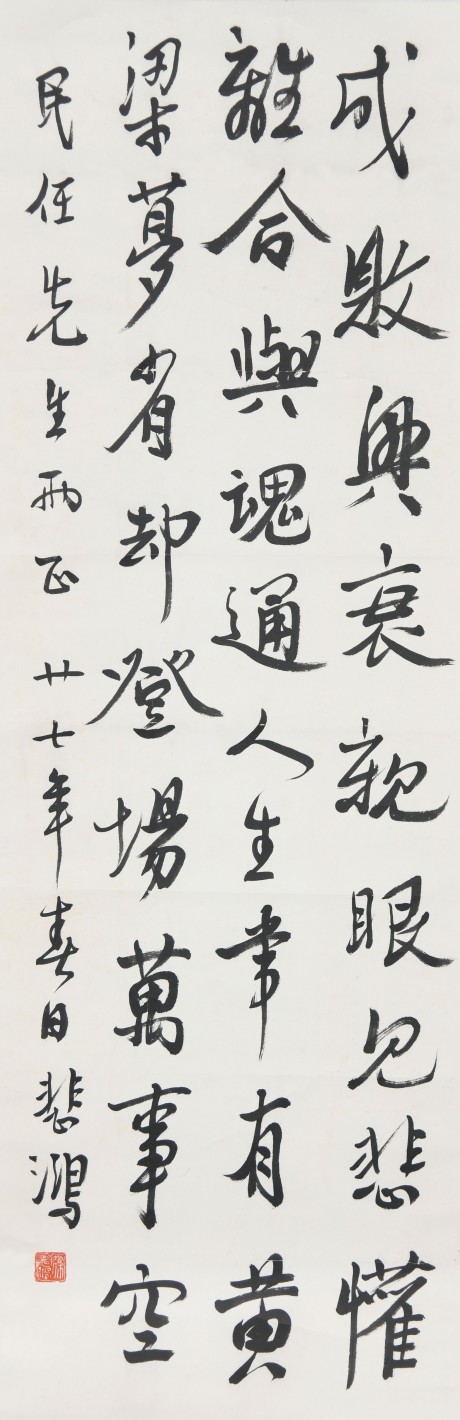 成敗興衰親眼見悲懽
離合與魂通人生常有黃
粱夢省却登場萬事空
民任先生雨正 廿七年春日 悲鴻